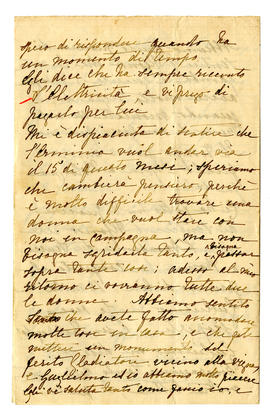 spero di rispondere quando ha
un momento di tempo
Egli dice che ha sempre ricevuto
l'Elettricità e vi prego di
pagarlo per lui
Mi è dispiaciuta di sentire che
l'Erminia vuol andar via
il 15 di questo mesi; speriamo
che cambierà pensiero, perché
è molto difficile trovare una
donna che vuol stare con
noi in campagna, ma non
bisogna sgridarla tanto, e bisogna passar
sopra tante cose; adesso al mio
ritorno ci vorranno tutte due
le donne. Abbiamo sentito
che avete fatto accomodare
molte cose in casa, e che
mettere un monumento del
ferito Gladiatore vicino alla
e Guglielmo ed io abbiamo molto piacere
Lui vi saluta tanto come faccio io, e